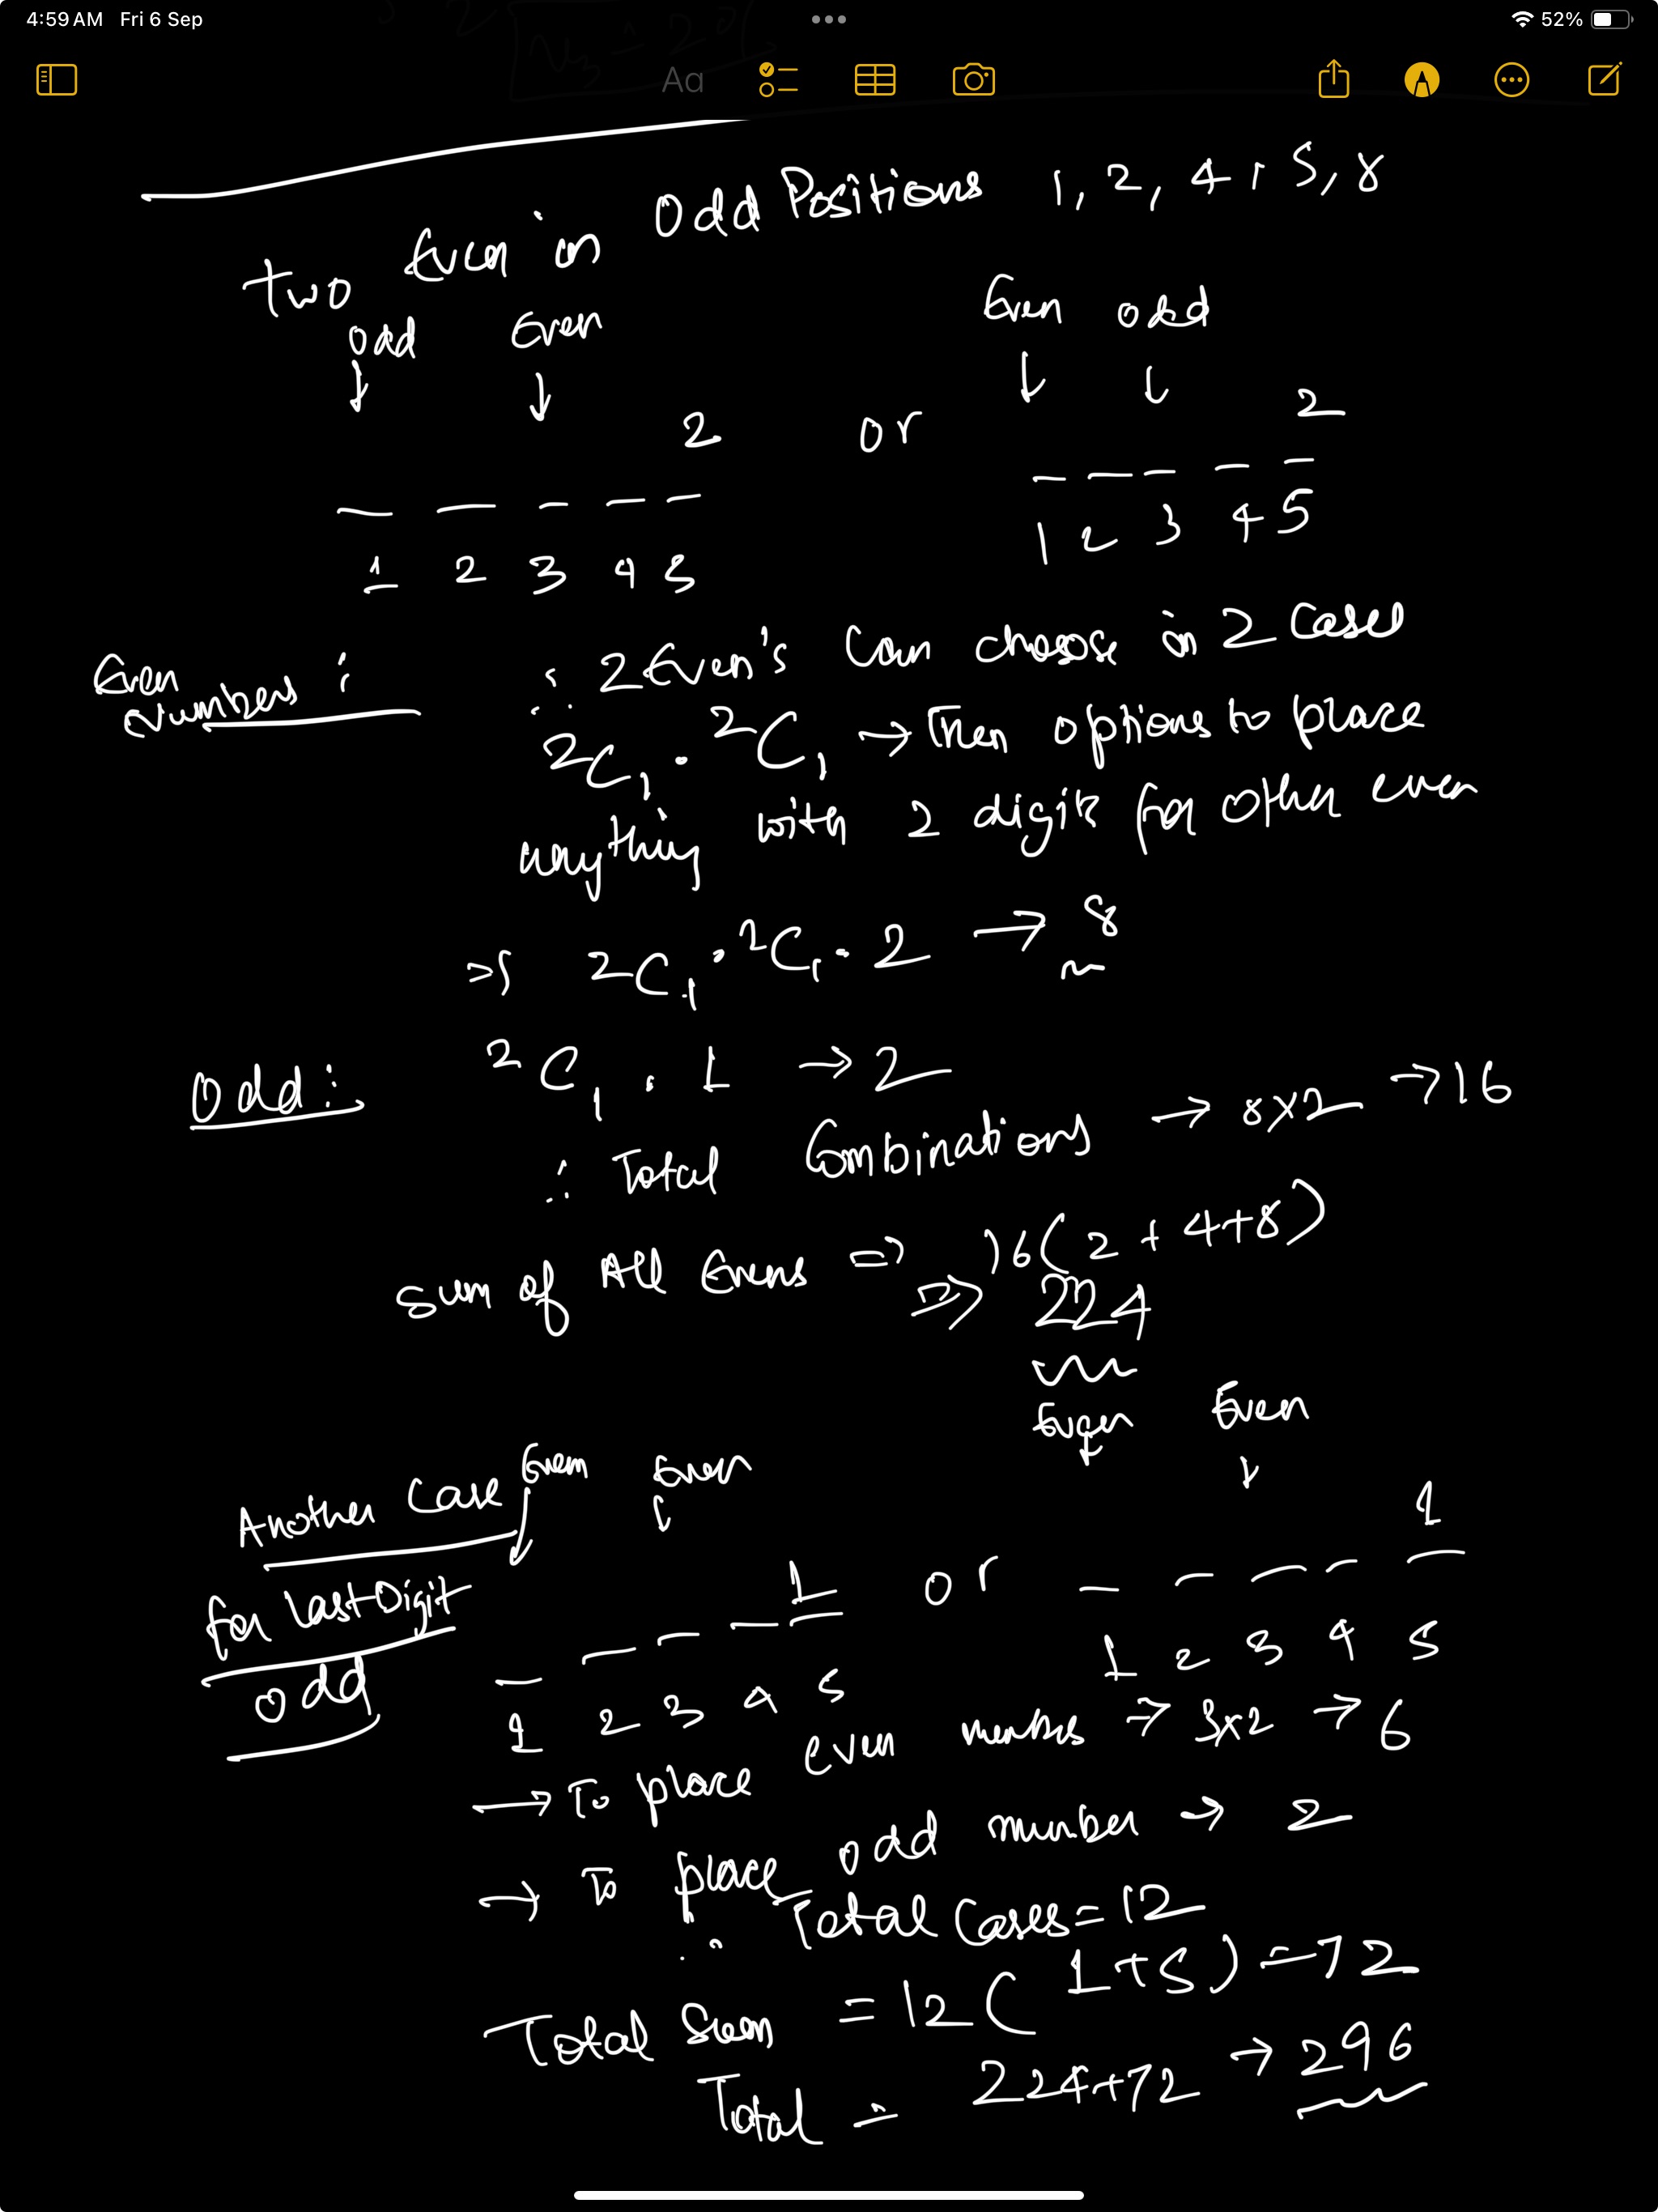 4:59 AM Fri 6 Sep
52%
Aa
Two Even in Odd Positions 1, 2, 4, 5, 8
Odd Even
Even odd
2 or 2
1 2 3 4 5
1 2 3 4 5
Even Numbers :
∴ 2 Even's can choose in 2 Cases
²C₁ · ²C₁ → Then options to place
anything with 2 digits for other even
=> ²C₁ · ²C₁ · 2 → 8
Odd : ²C₁ · 1 → 2
∴ Total Combinations → 8x2 → 16
Sum of All Evens => 16(2 + 4+8)
=> 224
Even Even
Another Case Even Even
for Last Digit odd
1 or 1
1 2 3 4 5
1 2 3 4 5
→ To place even numbers → 3x2 → 6
→ To place odd number → 2
∴ Total Cases = 12
Total Sum = 12(1+5) = 72
Total = 224+72 → 296